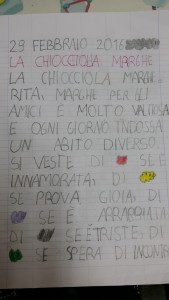 29 FEBBRAIO 2016
LA CHIOCCIOLA MARGHE
LA CHIOCCIOLA MARGHE
RITA, MARGHE PER GLI
AMICI È MOLTO VANITOSA
E OGNI GIORNO INDOSSA
UN ABITO DIVERSO.
SI VESTE DI SE È
INNAMORATA; DI
SE PROVA GIOIA; DI
SE È ARRABBIATA
DI SE È TRISTE; DI
SE SPERA DI INCONTR